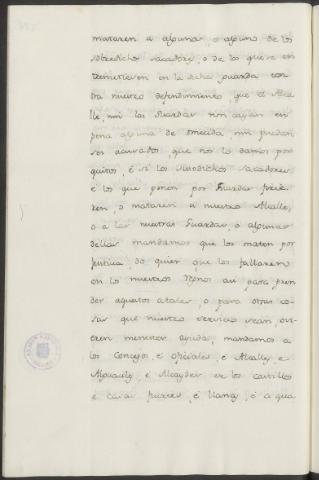 mataren a algunas, o alguno de los
sobredichos sacadores, o de los que se en
tremetieren en la dicha guarda con
tra nuestro defendimiento, que el Alca
lle, nin las Guardas non cayan en
pena alguna de omecida, nin puedan
ser acusados, que nos lo damos por
quitos, e si los susodichos sacadores
e los que ponen por Guardas firie
ren, o mataren a nuestro Alcalle,
o a las nuestras Guardas, o algunas
dellas mandamos que los maten por
justicia, do quier que los fallaren
en los nuestros Regnos asi para pren
der aquestos atales, o para otras co
sas que nuestro servicio sean, ovie
ren menester ayuda, mandamos a
los Concejos, e oficiales, e Alcalles, e
Alguaciles, e Alcaydes de los castillos
e casas fuertes, e llanas, e a qua